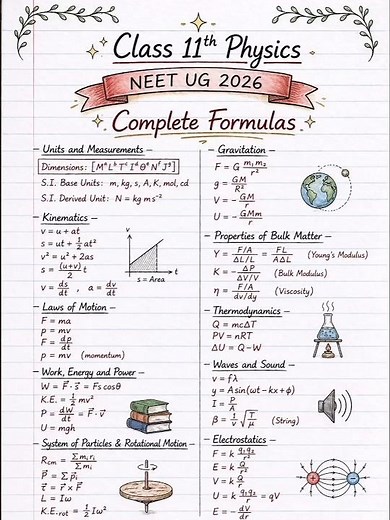 Class 11th Physics
NEET UG 2026
Complete Formulas
Units and Measurements –
Dimensions: [MᵃLᵇTᶜIᵈθᵉNᶠJᵍ]
S.I. Base Units: m, kg, s, A, K, mol, cd
S.I. Derived Unit: N = kg ms⁻²
Kinematics –
v = u + at
s = ut + 1/2 at²
v² = u² + 2as
s = (u+v)/2 t
v = ds/dt , a = dv/dt
v
t
s = Area
Laws of Motion –
F = ma
p = mv
F = dp/dt
p = mv (momentum)
Work, Energy and Power –
W = F⃗ · s⃗ = Fs cosθ
K.E. = 1/2 mv²
P = dW/dt = F⃗ · v⃗
U = mgh
System of Particles & Rotational Motion –
R_cm = Σmᵢrᵢ/Σmᵢ
p⃗ = Σp⃗ᵢ
τ⃗ = r⃗ × F⃗
L = Iω
K.E._rot = 1/2 Iω²
Gravitation –
F = G m₁m₂/r²
g = GM/R²
V = – GM/r
U = – GMm/r
Properties of Bulk Matter –
Y = F/A/ΔL/L = FL/AΔL (Young's Modulus)
K = – ΔP/ΔV/V (Bulk Modulus)
η = F/A/dv/dy (Viscosity)
Thermodynamics –
Q = mcΔT
PV = nRT
ΔU = Q – W
Waves and Sound –
v = fλ
y = A sin(ωt – kx + ϕ)
I = P/A
β = 1/v √T/μ (String)
Electrostatics –
F = k q₁q₂/r²
E = k Q/r²
V = k Q/r
U = k q₁q₂/r = qV
E = – dV/dr
+
–